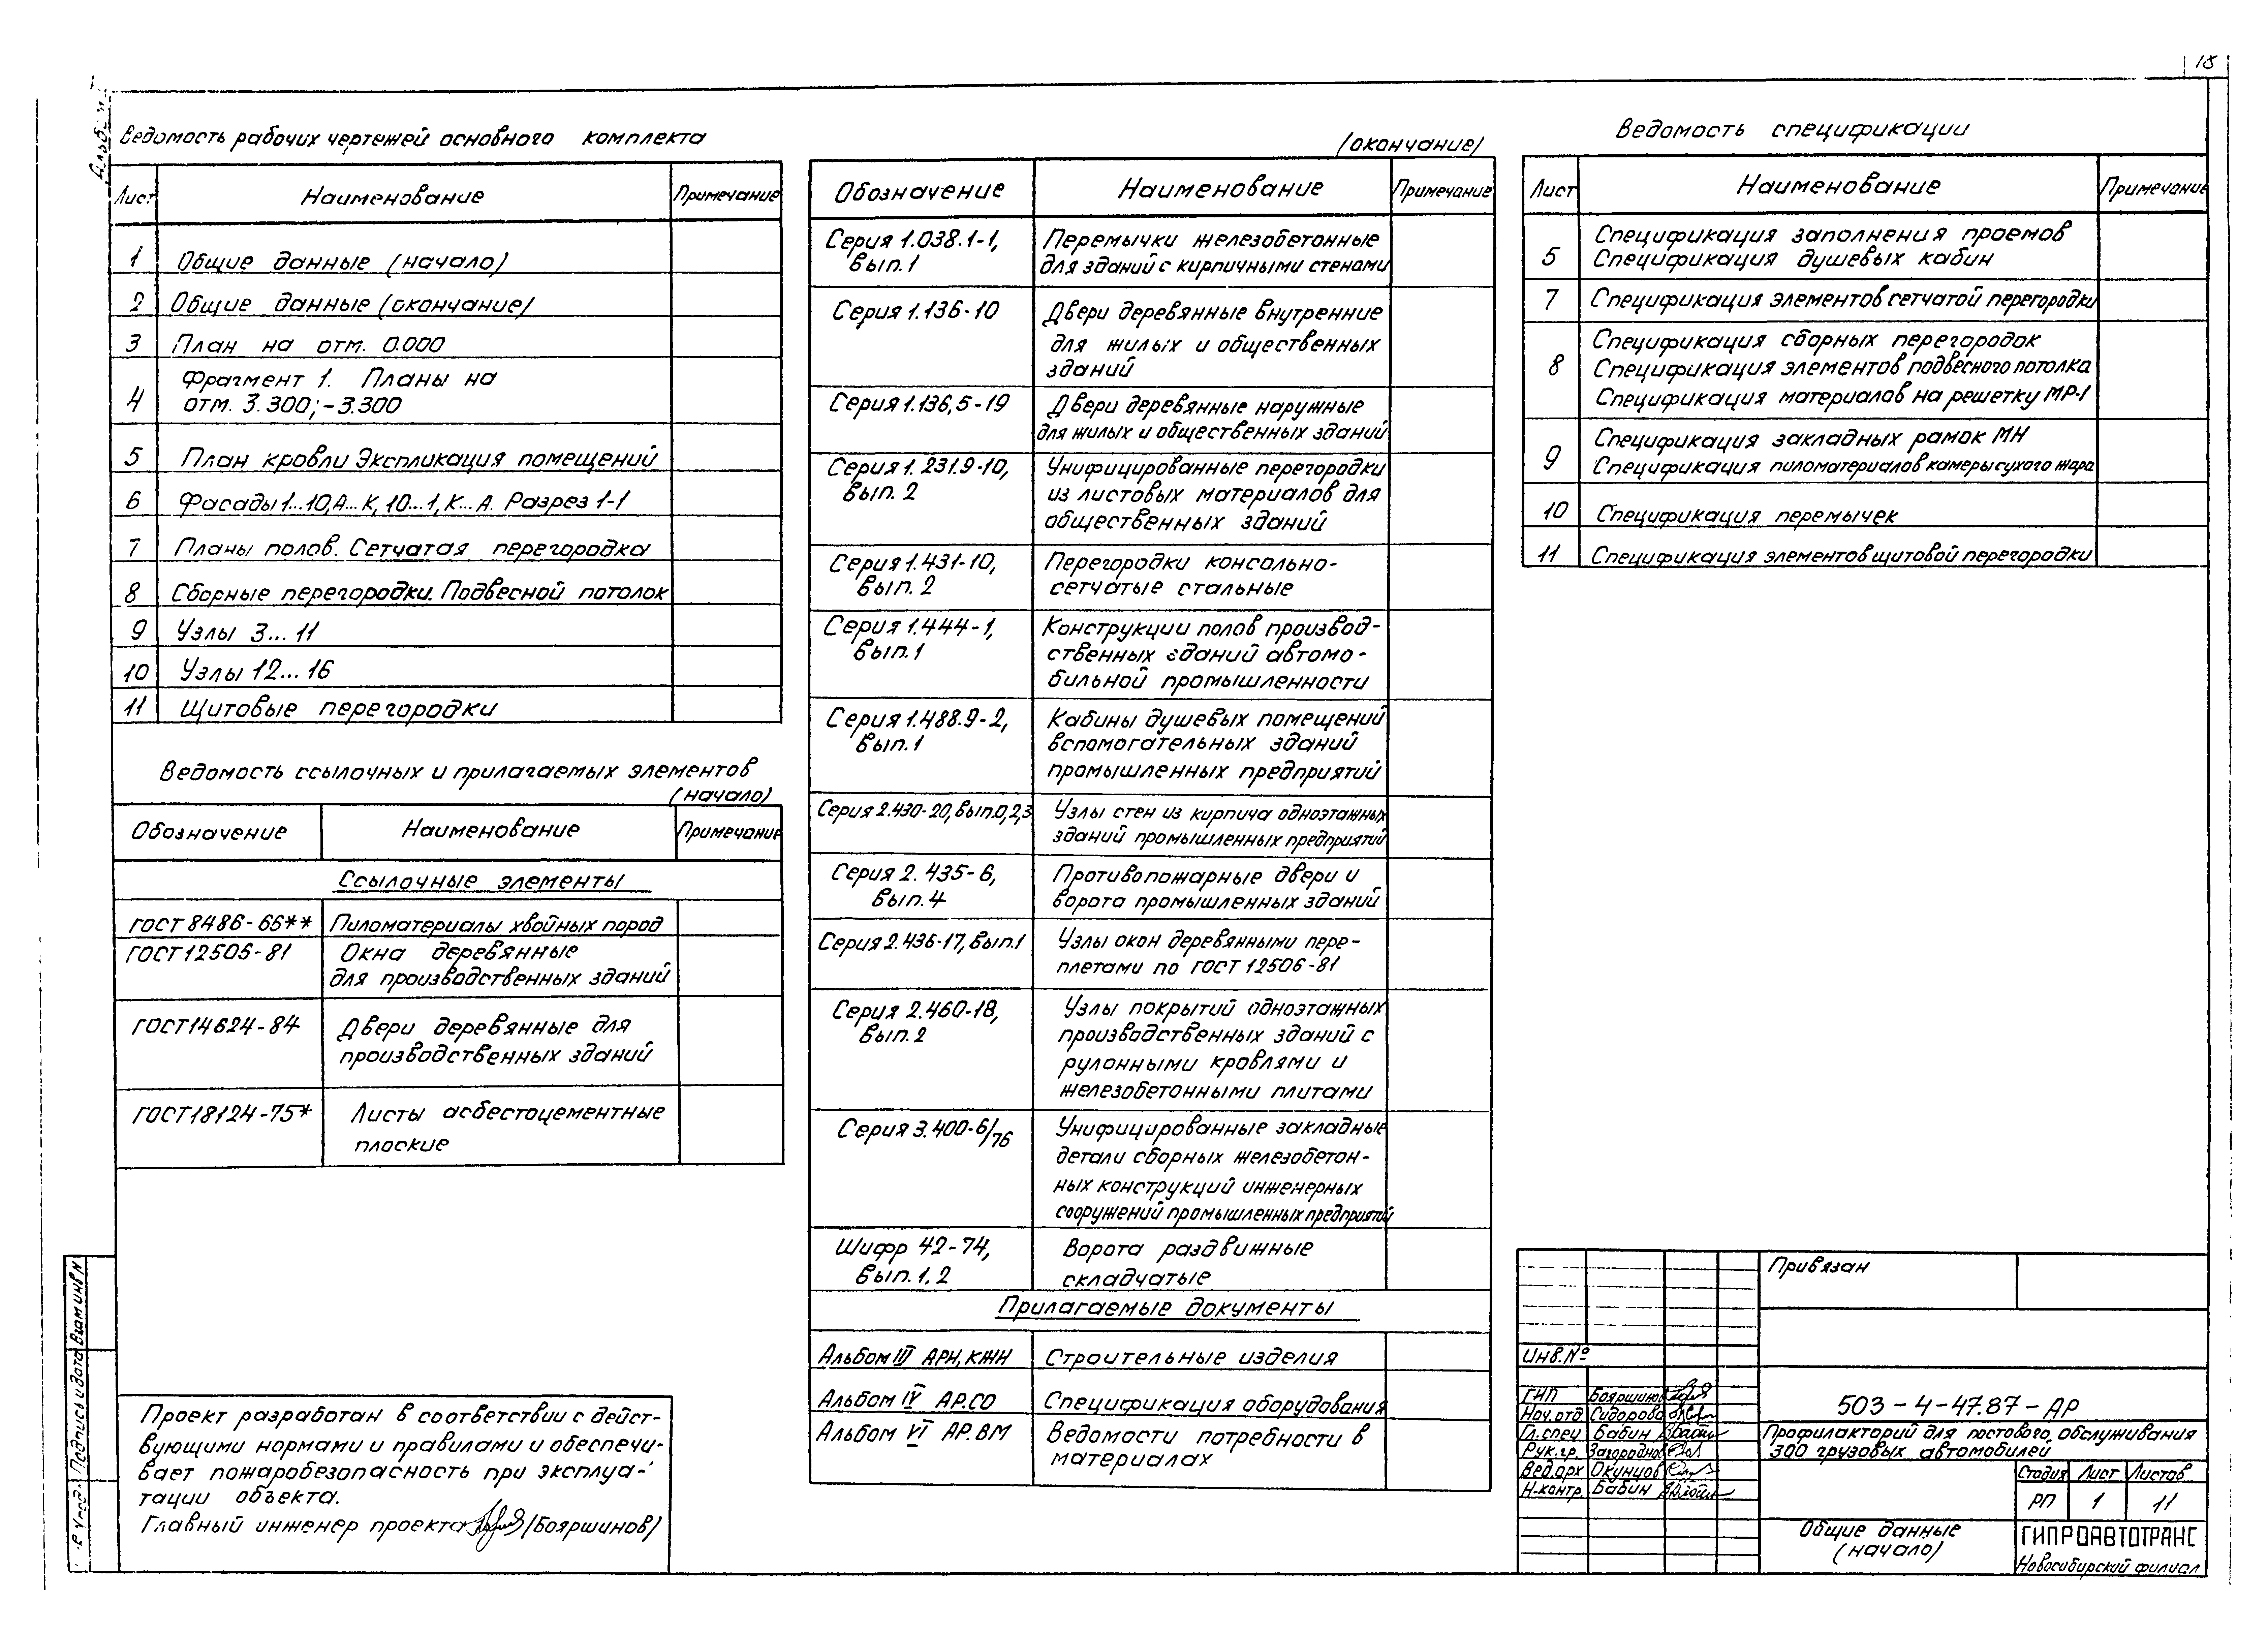 18
Альбом
Ведомость рабочих чертежей основного комплекта
Лист Наименование Примечание
1 Общие данные (начало)
2 Общие данные (окончание)
3 План на отм. 0.000
4 Фрагмент 1. Планы на
отм. 3.300; -3.300
5 План кровли Экспликация помещений
6 Фасады 1...10, А...К, 10...1, К...А. Разрез 1-1
7 Планы полов. Сетчатая перегородка
8 Сборные перегородки. Подвесной потолок
9 Узлы 3...11
10 Узлы 12...16
11 Щитовые перегородки
Ведомость ссылочных и прилагаемых элементов
(начало)
Обозначение Наименование Примечание
Ссылочные элементы
ГОСТ 8486-66** Пиломатериалы хвойных пород
ГОСТ 12506-81 Окна деревянные
для производственных зданий
ГОСТ 14624-84 Двери деревянные для
производственных зданий
ГОСТ 18124-75* Листы асбестоцементные
плоские
Проект разработан в соответствии с дейст-
вующими нормами и правилами и обеспечи-
вает пожаробезопасность при эксплуа-
тации объекта.
Главный инженер проекта /Бояршинов/
(окончание)
Обозначение Наименование Примечание
Серия 1.038.1-1, Перемычки железобетонные
вып. 1 для зданий с кирпичными стенами
Серия 1.136-10 Двери деревянные внутренние
для жилых и общественных
зданий
Серия 1.136,5-19 Двери деревянные наружные
для жилых и общественных зданий
Серия 1.231.9-10, Унифицированные перегородки
вып. 2 из листовых материалов для
общественных зданий
Серия 1.431-10, Перегородки консольно-
вып. 2 сетчатые стальные
Серия 1.444-1, Конструкции полов производ-
вып. 1 ственных зданий автомо-
бильной промышленности
Серия 1.488.9-2, Кабины душевых помещений
вып. 1 вспомогательных зданий
промышленных предприятий
Серия 2.430-20, вып.0,2,3 Узлы стен из кирпича одноэтажных
зданий промышленных предприятий
Серия 2.435-6, Противопожарные двери и
вып. 4 ворота промышленных зданий
Серия 2.436-17, вып.1 Узлы окон деревянными пере-
плетами по ГОСТ 12506-81
Серия 2.460-18, Узлы покрытий одноэтажных
вып. 2 производственных зданий с
рулонными кровлями и
железобетонными плитами
Серия 3.400-6/76 Унифицированные закладные
детали сборных железобетон-
ных конструкций инженерных
сооружений промышленных предприятий
Шифр 42-74, Ворота раздвижные
вып. 1, 2 складчатые
Прилагаемые документы
Альбом III АРИ, КЖИ Строительные изделия
Альбом IV АР.СО Спецификация оборудования
Альбом VI АР.ВМ Ведомости потребности в
материалах
Ведомость спецификации
Лист Наименование Примечание
Спецификация заполнения проемов
5 Спецификация душевых кабин
7 Спецификация элементов сетчатой перегородки
Спецификация сборных перегородок
8 Спецификация элементов подвесного потолка
Спецификация материалов на решетку МР-1
Спецификация закладных рамок МН
9 Спецификация пиломатериалов камеры сухого жара
10 Спецификация перемычек
11 Спецификация элементов щитовой перегородки
Привязан
Инв.№
ГИП Бояршинов
Нач.отд. Сидорова
Гл.спец Бабин
Рук.гр. Загороднов
Вед.арх Окунцов
Н-контр. Бабин
503-4-47.87-АР
Профилакторий для постового обслуживания
300 грузовых автомобилей
Стадия Лист Листов
РП 1 11
Общие данные
(начало)
ГИПРОАВТОТРАНС
Новосибирский филиал
Взам инв N
Подпись и дата